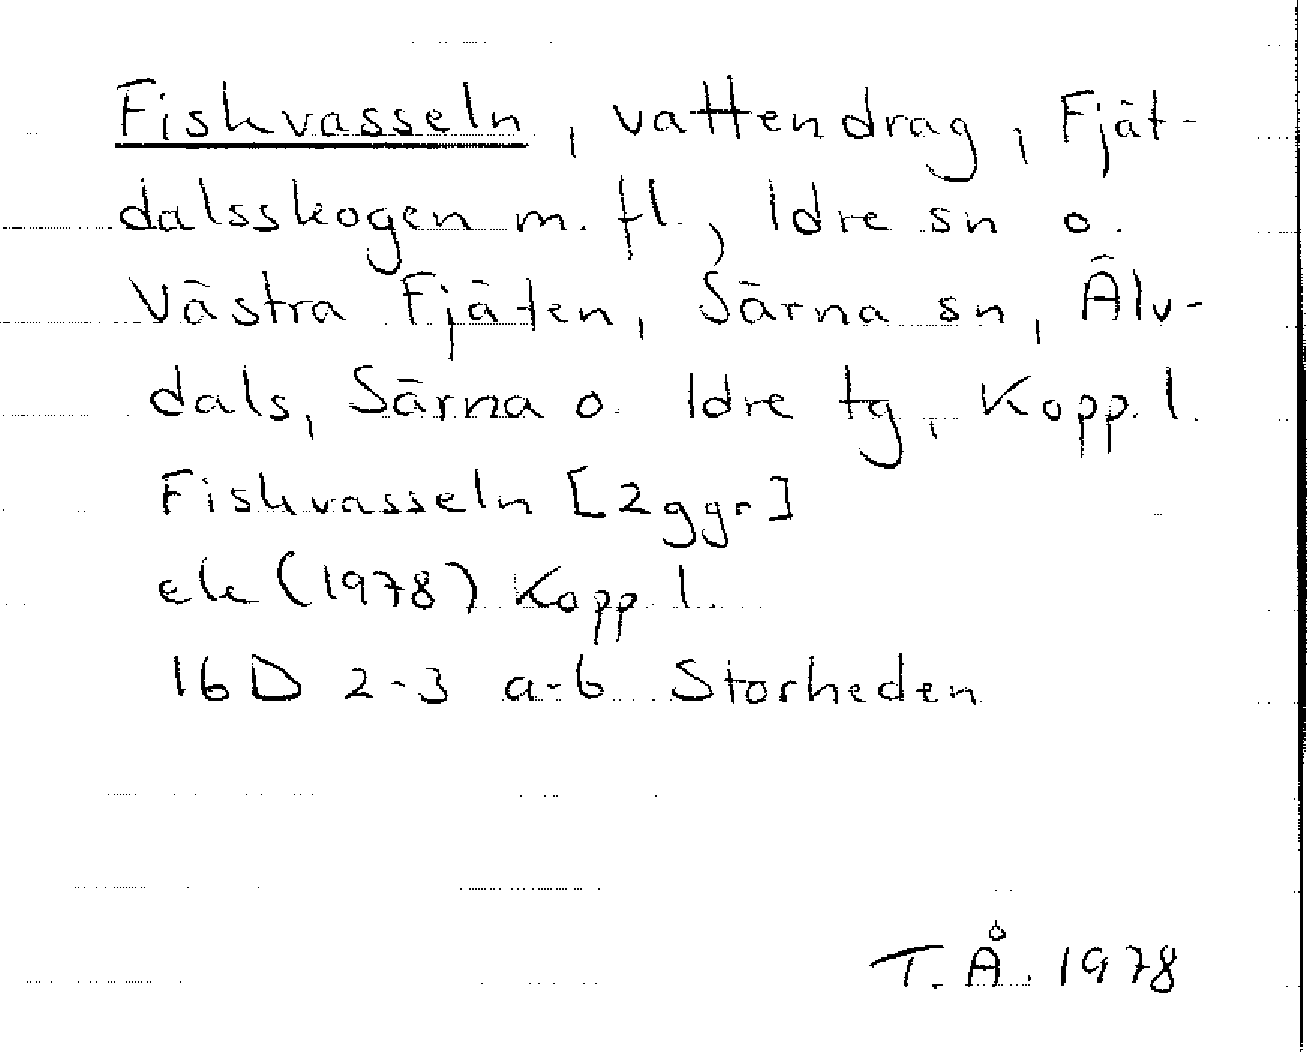 Fiskvasseln, vattendrag, Fjät-
dalsskogen m. fl., Idre sn o.
Västra Fjäten, Särna sn, Älv-
dals, Särna o. Idre tg, Kopp. l.
Fiskvasseln [2 ggr]
ek (1978) Kopp l.
16 D 2-3 a-b Storheden
T. Å. 1978